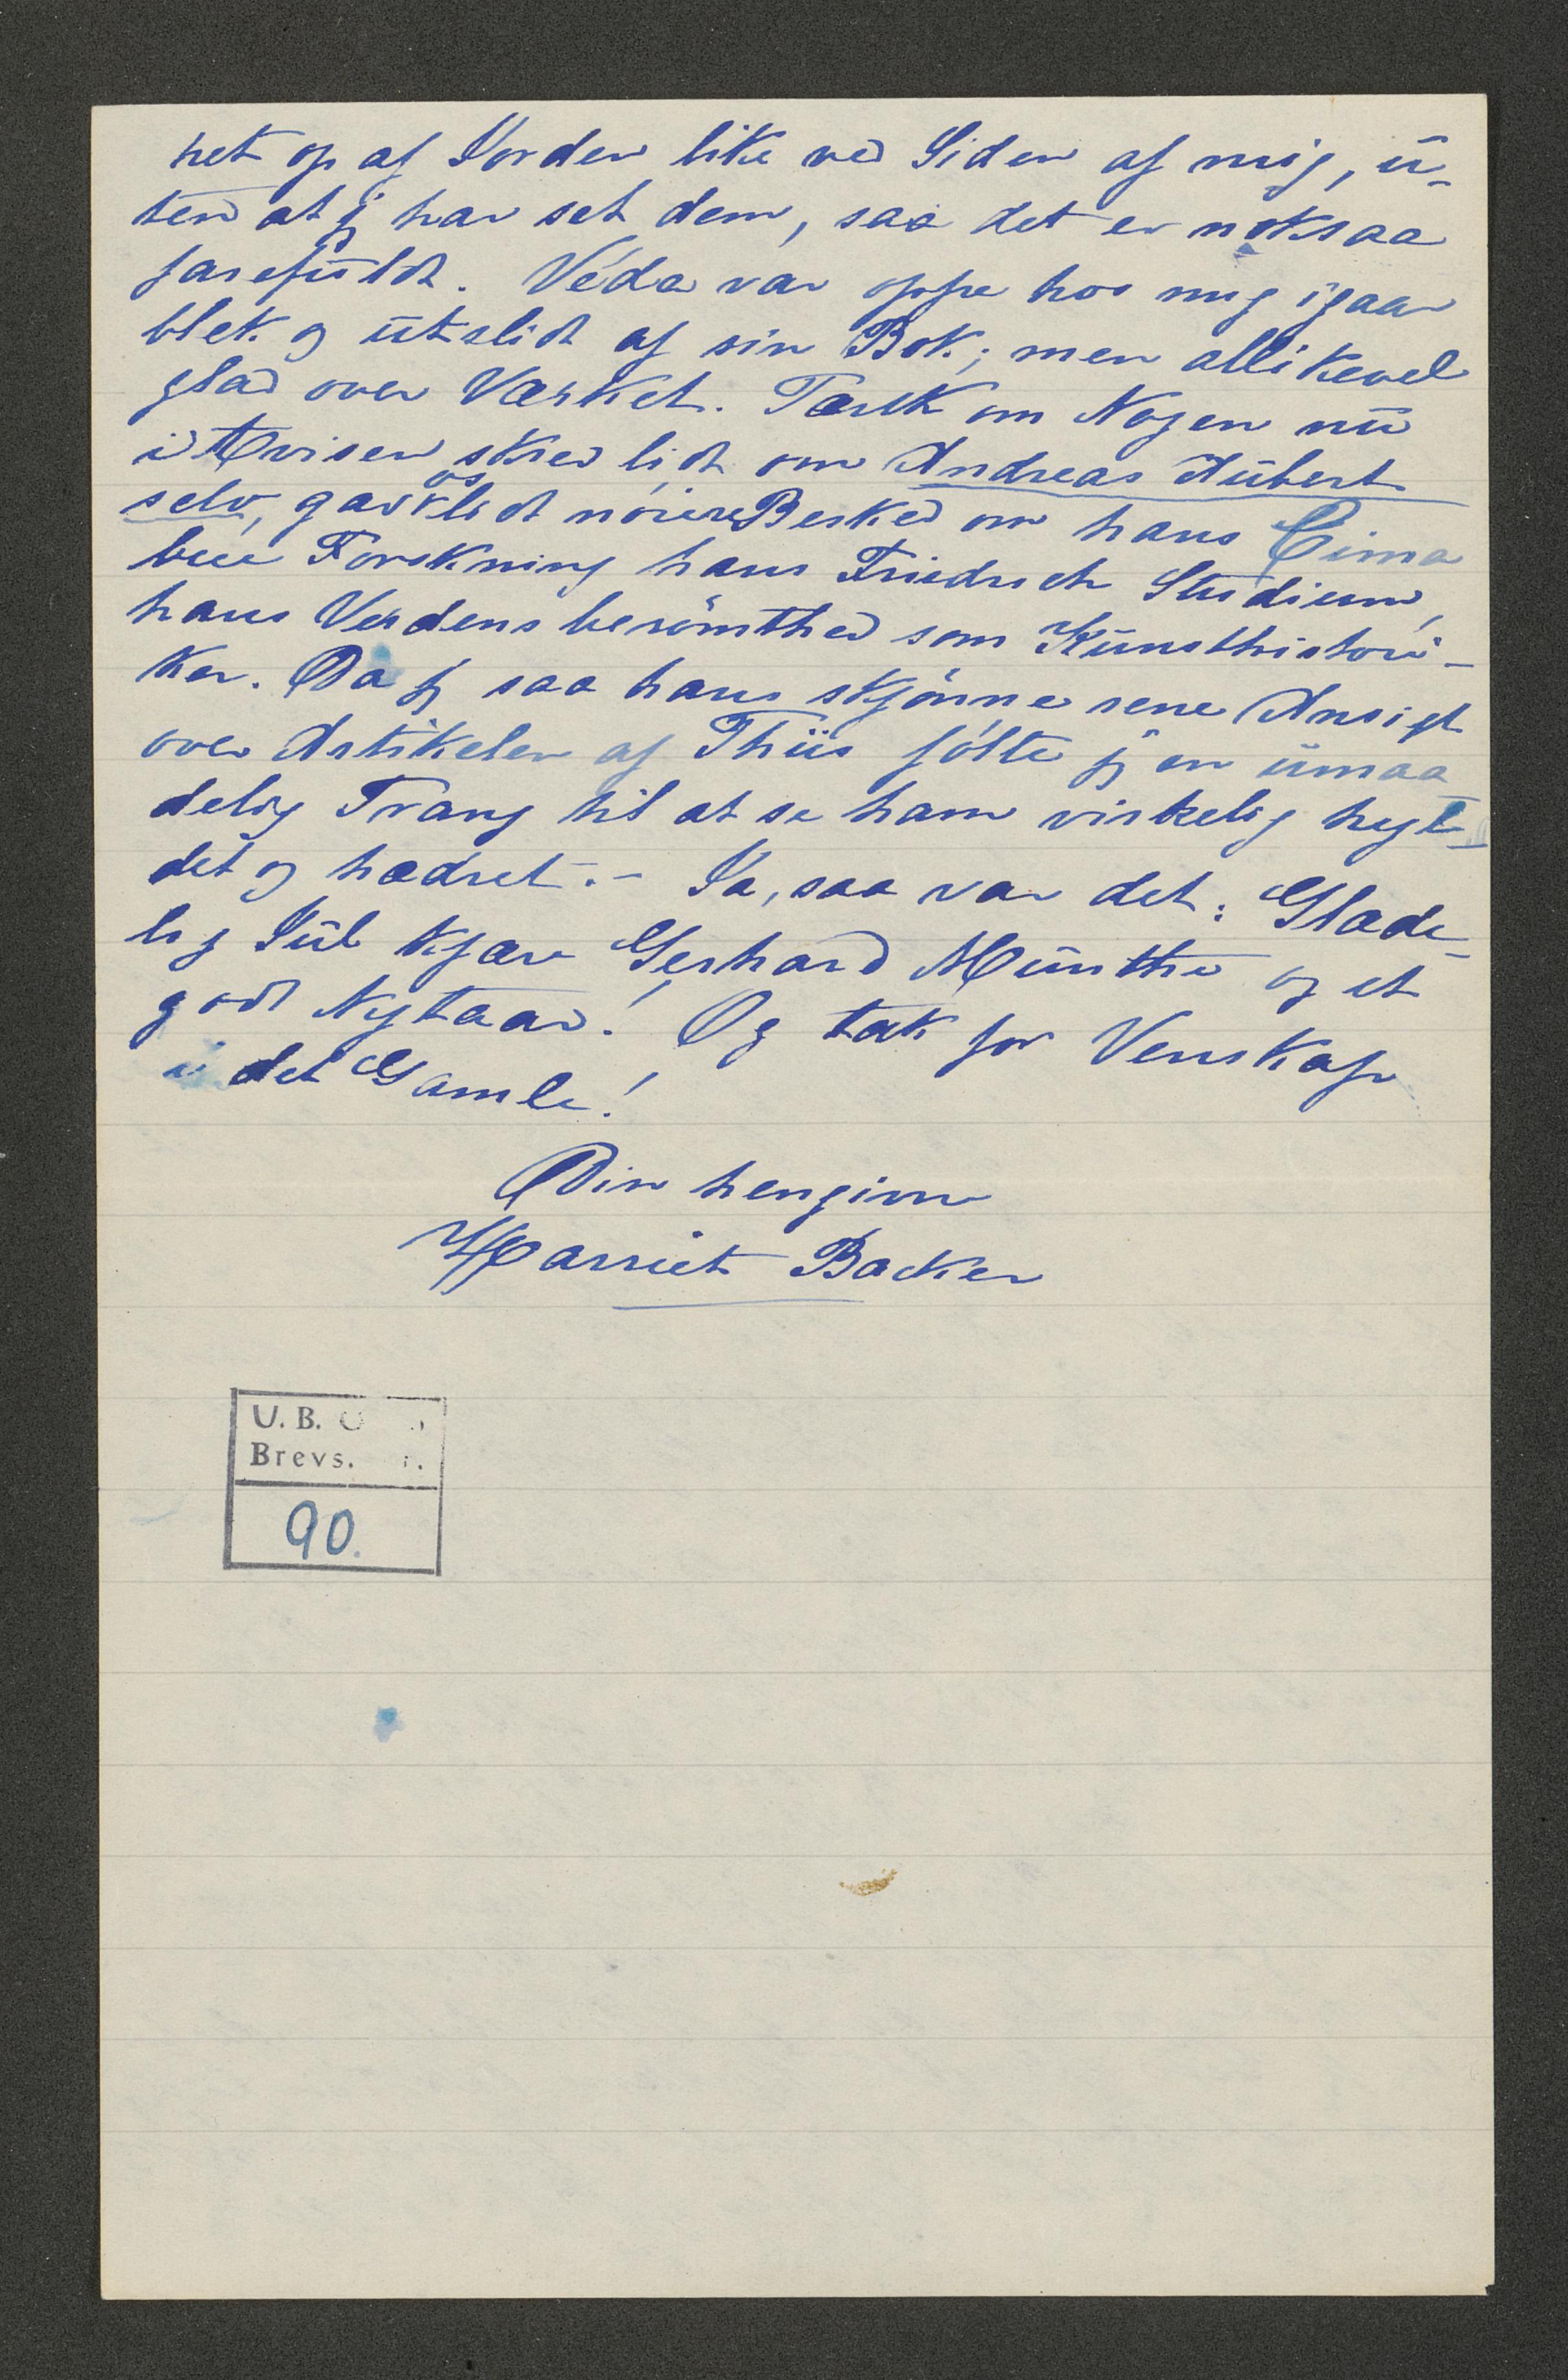 net op af Jorden like ved Siden af mig, u-
ten at jeg har set dem, saa det er noksaa
farefuldt. Veda var oppe hos mig igaar
blek og utslidt af sin Bok; men allikevel
glad over Værket. Tænk om Nogen nu
i Avisen skrev lidt om Andreas Aubert
selv, gav os lidt nöiere Besked om hans Cima
bue Forskning hans Friedrich Studium,
hans Verdensberömthed som Kunsthistori-
ker. Da jeg saa hans skjönne rene Ansigt
over Artikelen af Thiis fölte jeg en umaa
delig Trang til at se ham virkelig hyl-
det og hædret. – Ja, saa var det: Glæde-
lig Jul kjære Gerhard Munthe og et
godt Nytaar! Og tak for Venskap
i det Gamle!
Din hengivne
Harriet Backer
U. B.
Brevs.
90.